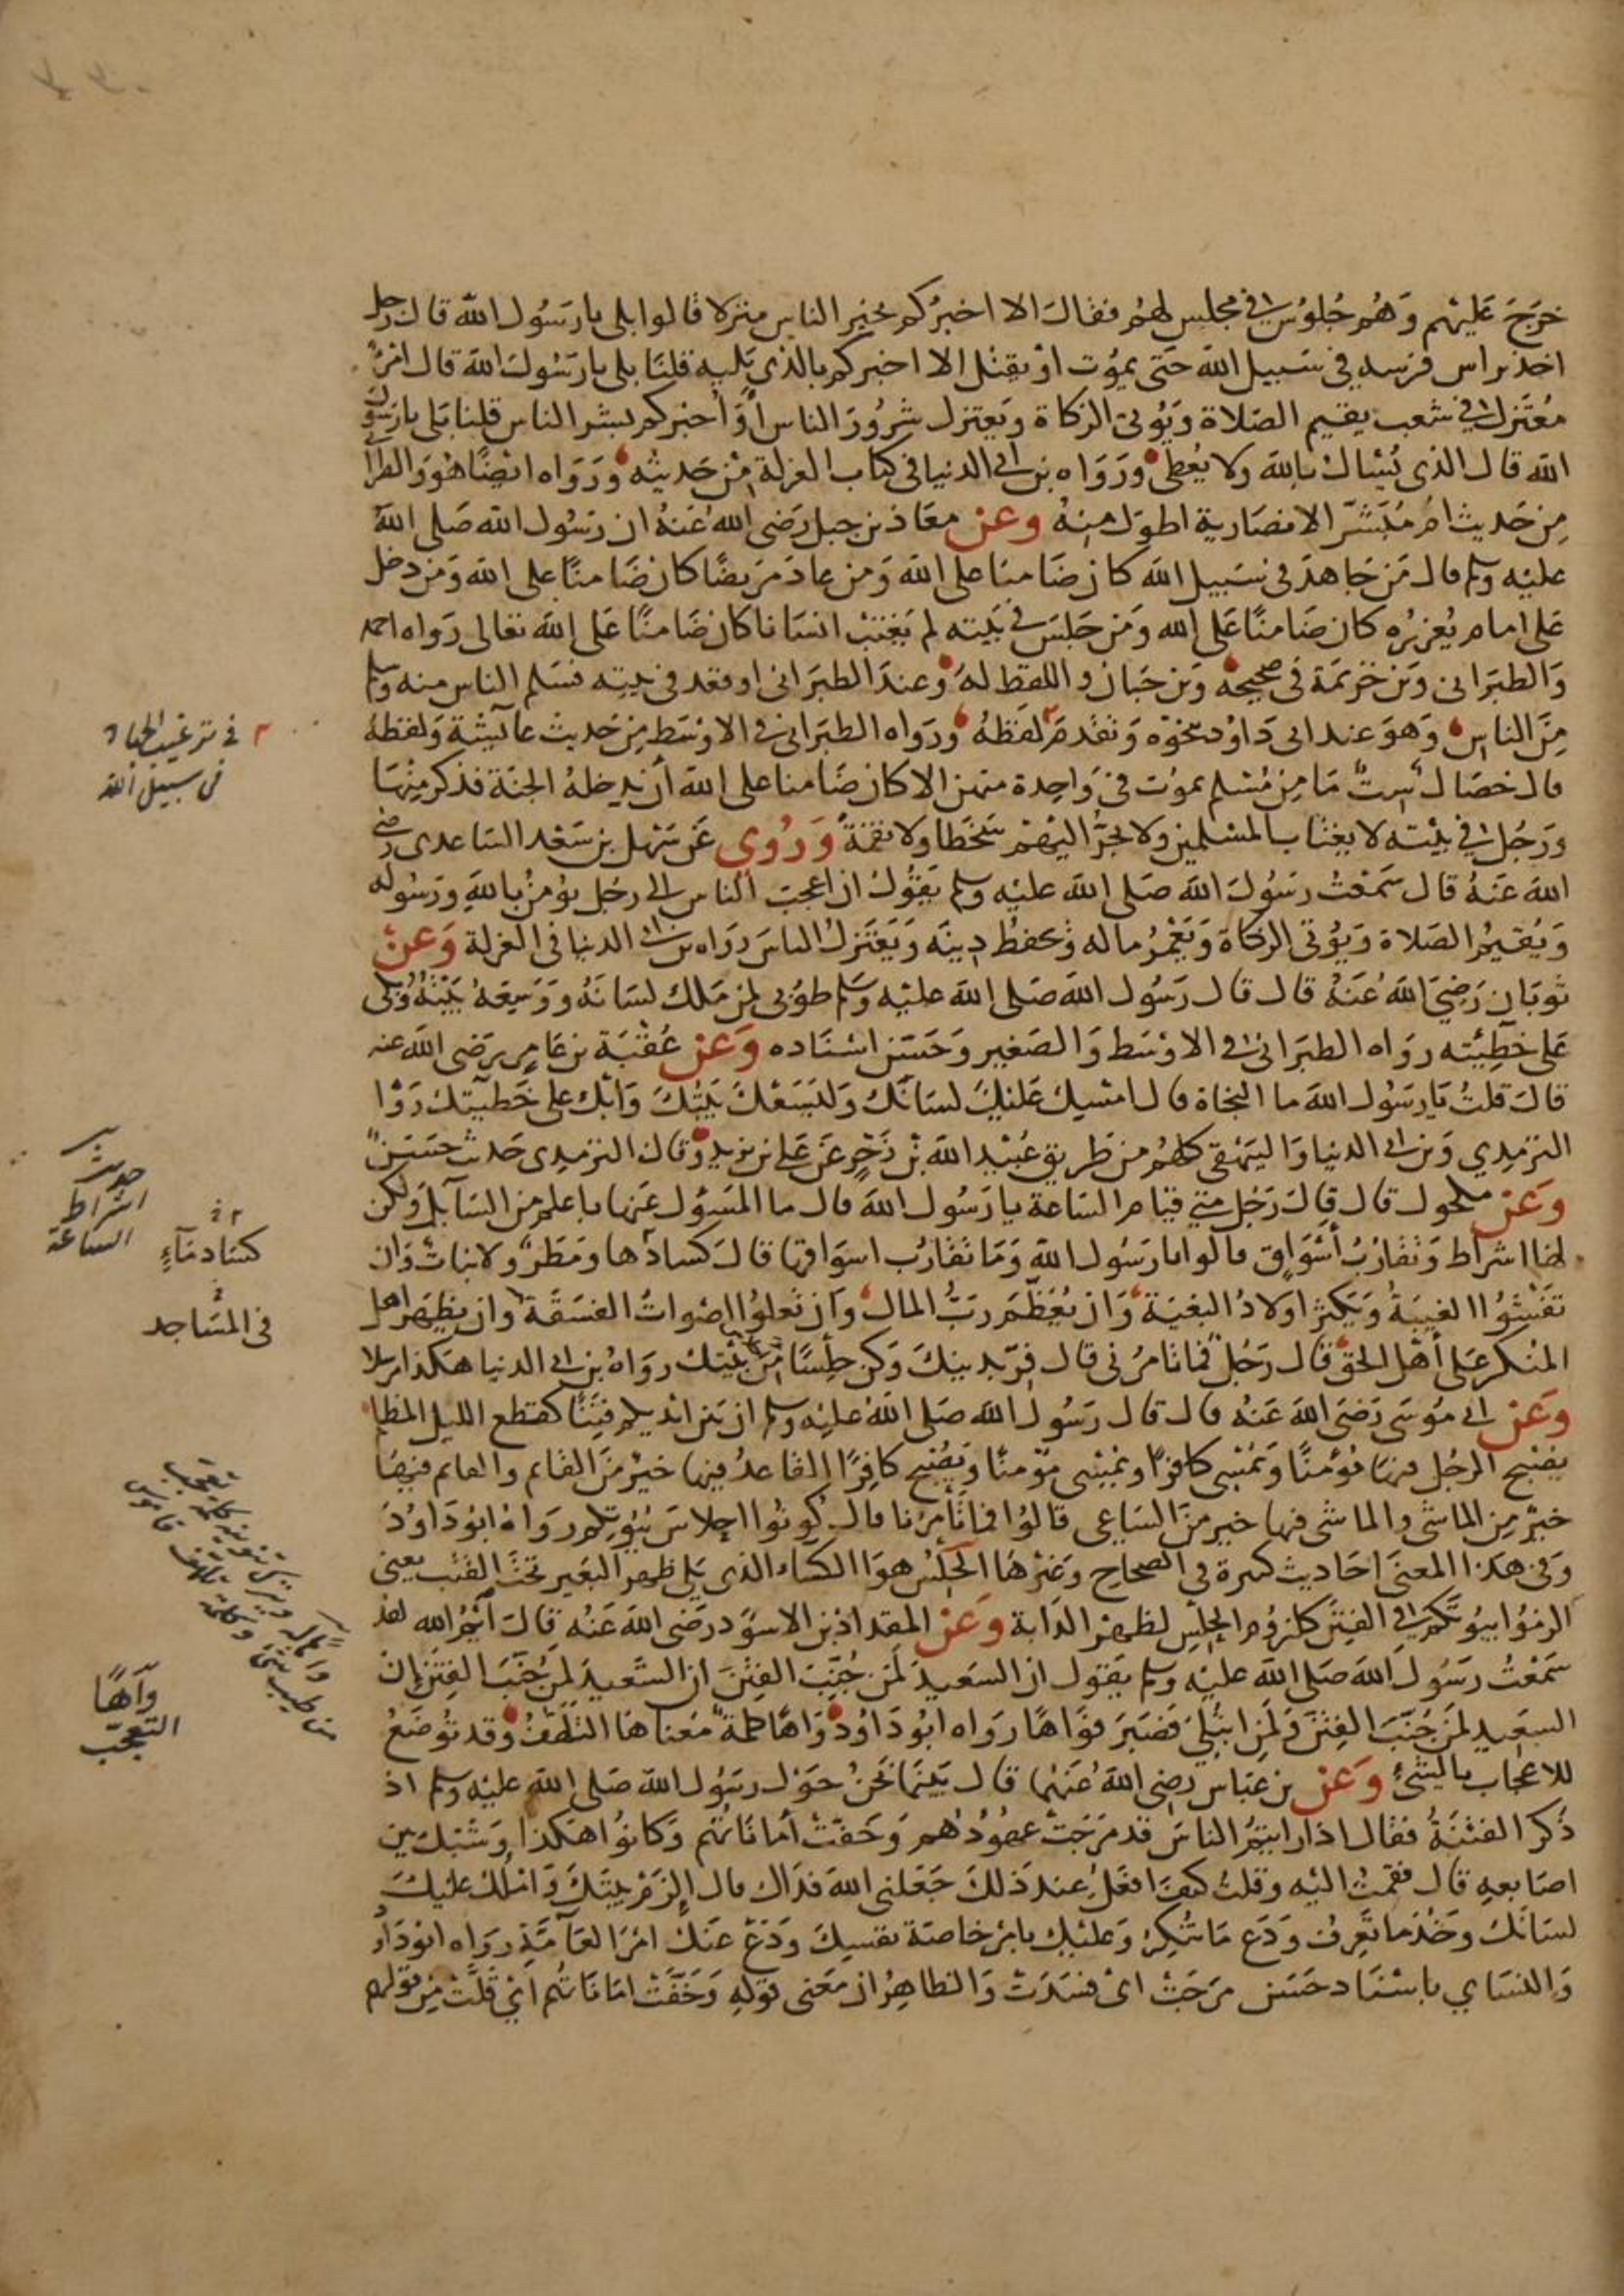 خرَجَ عَليْهم وَهُم جُلوُس في مجلس لهُم فقالَ الا اخبرُكم بخير الناس منزلا قالوا بلى يا رسُول الله قال رجل
اخذ براس فرسه في سَبيل الله حَتى يموُت او يقتل الا اخبركم بالذي يَليه قلنَا بلى يا رَسُولَ الله قال امرؤٌ
مُعتَزل في شعب يقيم الصَلاة وَيؤتى الزكاة وَيعتزل شرُورَ الناس أوَ أخبركم بشر الناس قلنا بَلى يا رسُول
الله قال الذى يُسْاَل بالله ولا يُعطى ورَوَاه بن ابى الدنيا فى كتاب العزلة مِنْ حَديثه وَرَوَاه ايضًا هُوَ وَالطبرَا
مِن حَديث امِّ مُبَشّر الانصَارية اطوَل مِنهُ وعن معَاذ بن جبل رَضى الله عَنهُ ان رسُول الله صَلى الله
عليْه وسلم قال مَن جَاهدَ فى سَبيل الله كان ضَامنا على الله وَمن عادَ مَريضًا كان ضَامنًا على الله وَمن دخل
عَلى امام يُعزرُه كان ضَامنًا عَلى الله وَمَن جَلسَ فى بَيته لم يَغتبْ انسَانا كان ضَامنًا عَلى الله تعالى رَواه احمد
وَالطبَرانى وَبن خزيمَة فى صحيحه وَبن حَبان و اللفظ لهُ وَعندَ الطبَرانى او قعد فى بيته فسَلم الناس منه وسلم
مِنَ الناس وَهوَ عند ابى دَاوُد بنحوْه وَتقدمَ لفظهُ وَرَواه الطبَرانى فى الاوْسَط مِن حَديث عآئشة وَلفظهُ
قال خصَال ستٌ مَا مِن مُسْلم يموُت فى وَاحِدة منهن الا كان ضَامنا على الله أن يدخلهُ الجنة فذكر مِنْهَا
وَرَجُل في بيْته لا يغتاب المسْلمين ولا يجرّ اليْهمْ سَخطا ولا نقمَةً وَرُوى عَن سَهْل بن سَعْد السَاعدى رضى
الله عَنهُ قال سَمعْتُ رسُولَ الله صَلى الله عليْه وسلم يَقوُل ان اعجبَ الناس الى رجُل يؤمنُ بالله وَرَسُوله
وَيُقيمُ الصَلاة وَيؤتى الزكاة وَيَعْمُر ماله وَيحفظ دِينَه وَيَعْتَزلُ الناسَ رَوَاه بن ابى الدنيا فى العزلة وَعنْ
ثوبَان رَضيَ الله عَنهُ قال قال رَسُول الله صَلى الله عليْه وسَلم طوُبى لمن مَلك لسَانَهُ وَوَسِعَهُ بَيْتهُ وَبَكى
عَلى خَطِيئته روَاه الطبَرانى فى الاوْسَط وَالصَغير وَحَسّن اسْنَاده وَعَن عُقبَة بن عَامِر رَضى الله عنه
قالَ قلتُ يَا رسُول الله ما النجاة قال امْسِك عَليْكَ لسَانَكَ وَليَسَعْكَ بَيْتُكَ وَابْك على خَطيئتك رَوَا
الترمِذي وَبن ابى الدنيا وَالبيْهَقى كلهُم من طَريق عُبيْد الله بْن زَحْرٍ عَن عَلى بن يزيد وَقال الترمِذى حَديث حسَنٌ
وَعَن مكحول قال قالَ رَجُل متى قيَام السَاعة يا رَسُول الله قال ما المَسؤل عَنها باعلم من السَآئل وَلكن
لها اشرَاط وَتقارُبُ أسْوَاق قالوا يا رسُول الله وَمَا تقارُب اسوَاقها قالَ كسادُها وَمَطرٌ ولا نباتٌ وَان
تَفْشُوا الغيبَةُ وَيَكثرَ اولادُ البغيَة وَان يُعَظَّمَ رَبُّ المال وَان تَعلوُا اصْوَاتُ الفسَقَة وان يظهَر اهل
المنكر عَلى أهْل الحَق قال رَجُل فما تامُرُنى قال فِرّ بدينِكَ وَكن حِلْسًا مِن بيْتك روَاهُ بن ابى الدنيا هَكذا مرسلا
وَعَن ابى موُسَى رَضى الله عَنهُ قال قال رَسُول الله صَلى الله عليْه وسلم ان بَيْن ايْديكم فتنًا كقطع الليل المظلم
يُصْبح الرجُل فيها مؤمنًا وَيمْسى كافرًا ويمْسِى مؤمنًا وَيُصْبح كافِرًا القاعدُ فيها خيْر مِنَ القائم والقائم فيهَا
خيْر مِن الماشى و الماشى فيها خير منَ السَاعى قالوُا فما تأمرنا قال كوُنوُا احلاسَ بُيُوتكم روَاهُ ابوُ دَاوُدَ
وَفى هَذا المعنى احَاديث كثيرة فى الصحاح وَغيْرهَا الحلسُ هوَا الكسَاء الذى يَلى ظهرَ البَعير تحتَ القتب يعنى
الزمُوا بيُوتكم فى الفِتَن كلزوُم الحلْس لظهْر الدَابة وَعَن المقداد بن الاسوَد رَضى الله عَنهُ قالَ أيْمُ الله لقد
سَمعْتُ رسُولَ الله صَلى الله عليْه وسلم يقول ان السَعيدَ لمَن جُنّبَ الفِتن ان السَعيدَ لمن جُنّبَ الفِتَن ان
السَعيد لمَن جُنّبَ الفِتَن وَلمَن ابتُلىَ فصَبَر فوَاهًا روَاه ابوُ دَاوُد وَاهًا كلمَة مَعناهَا التلهّف وَقد توُضَعُ
للاعجَاب بالشئ وَعَن بن عبَاس رَضى الله عَنهُما قال بَينَما نَحنُ حَوْل رسُول الله صَلى الله عليْه وسلم اذ
ذكر الفتْنَةُ فقال اذا رايتمُ الناس قد مَرجَتْ عهُوُدُهُم وَخفّتْ أمانَاتُهُم وَكانوُا هَكذا وَشبّك بين
اصَابعهِ قال فقمْتُ اليْه وقلتُ كيفَ افعَلُ عندَ ذلكَ جَعَلنى الله فدَاك قال الزَمْ بيتَكَ وَامْلك عليْك
لسَانَكَ وَخُذ ما تَعرفُ وَدَع مَا تُنكِر وَعليْك بامْر خاصَة نفسِكَ وَدَعْ عَنك امْرَ العَآمَّة رَوَاه ابوُ دَاوُد
وَالنسَاي باسْنَاد حَسَن مَرجَتْ اىْ فسَدَتْ وَالظاهِرُ ان مَعنى قوْلهِ وَخَفَّتْ امَانَاتهُم أىْ قَلّتْ مِن قولهم
٢ فى ترغيب الجهاد
فى سبيل الله
حديث
اشراط
الساعة
كسَادهَآءٍ
فى المسَاجد
وآهًا
التعجب